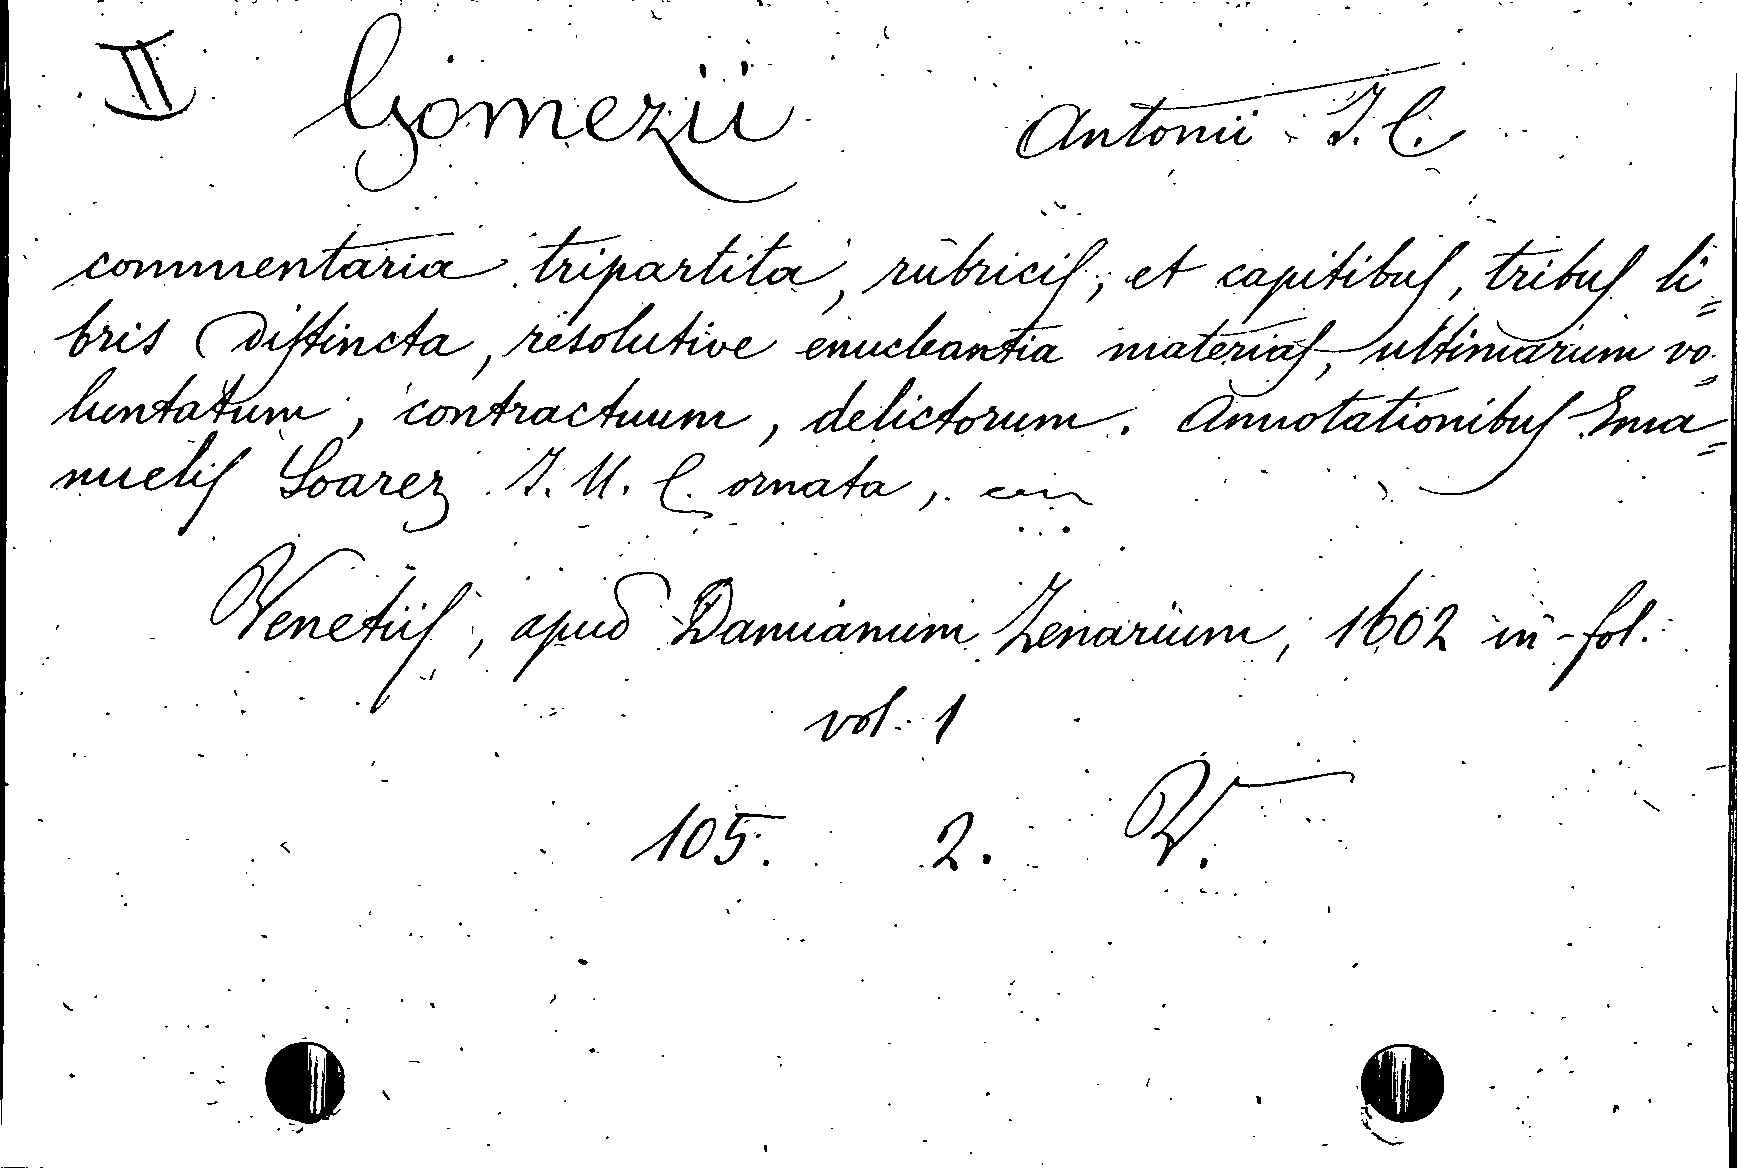 II Gomezii Antonii J. C.
commentaria tripartita, rubricis, et capitibus, tribus li=
bris distincta, resolutive enucleantia materias, ultimarum vo=
luntatum, contractuum, delictorum. Annotationibus Ema=
nuelis Soarez J. U. C. ornata,
Venetiis, apud Damianum Zenarium, 1602 in-fol.
vol. 1
105. 2. V.